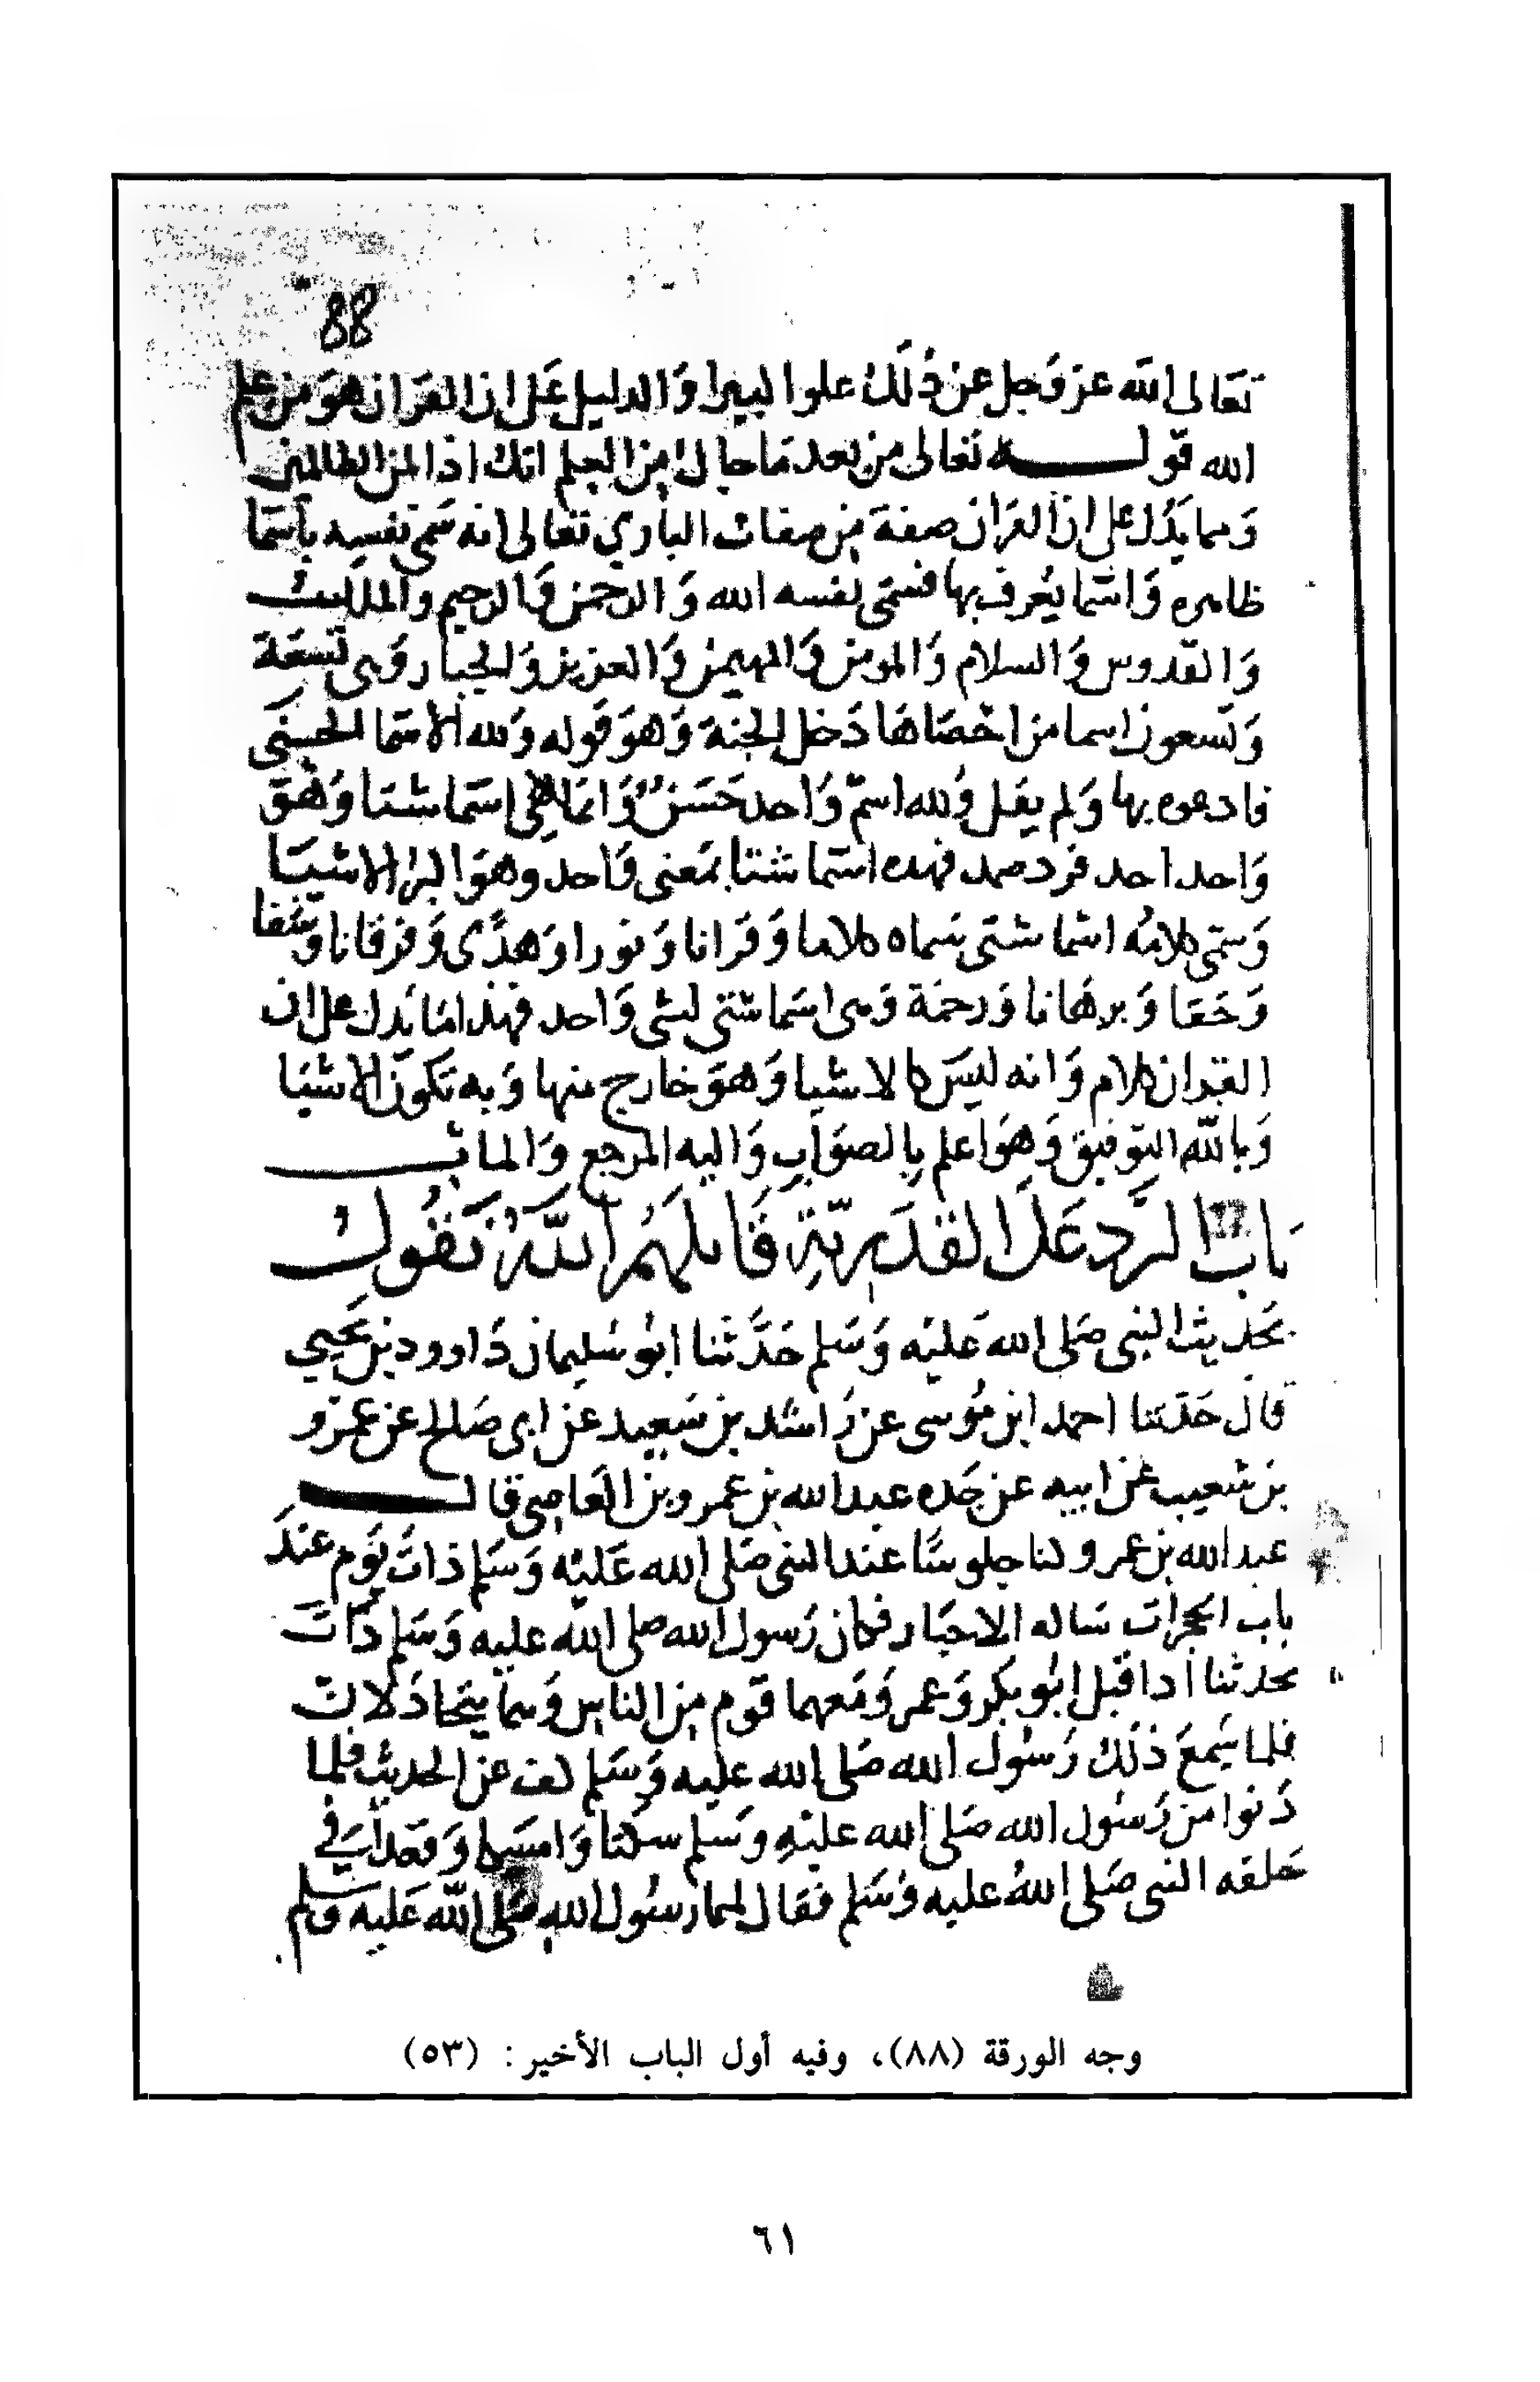 88
تعالى الله عز وجل عن ذلك علوا كبيرا والدليل على ان القران هو من علم
الله قوله تعالى من بعد ما جاك من العلم انك اذا لمن الظالمين
ومما يدل على ان القران صفة من صفات الباري تعالى انه سمى نفسه باسما
ظاهره واسما يعرف بها فسمى نفسه الله والرحمن والرحيم والملك
والقدوس والسلام والمومن والمهيمن والعزيز والجبار وهي تسعة
وتسعون اسما من احصاها دخل الجنة وهو قوله ولله الاسما الحسنى
فادعوه بها ولم يقل ولله اسم واحد حسن وانما هي اسما شتا وهو
واحد احد فرد صمد فهذه اسما شتا بمعنى واحد وهو اكبر الاشيا
وسمى كلامه اسما شتى سماه كلاما وقرانا ونورا وهدى وفرقانا وشفا
وحقا وبرهانا ورحمة وهي اسما شتى لشي واحد فهذا مما يدل على ان
القران كلام وانه ليس كالاشيا وهو خارج منها وبه تكون الاشيا
وبالله التوفيق وهو اعلم بالصواب واليه المرجع والماب
باب الرد على القدرية قاتلهم الله نقول
بحديث النبي صلى الله عليه وسلم حدثنا ابو سليمان داوود بن يحيي
قال حدثنا احمد ابن موسى عن راشد بن سعيد عن ابي صالح عن عمرو
بن شعيب عن ابيه عن جده عبد الله بن عمرو بن العاصي قال
عبد الله بن عمرو كنا جلوسا عند النبي صلى الله عليه وسلم ذات يوم عند
باب الحجرات ساله الاحبار فكان رسول الله صلى الله عليه وسلم ذات
يحدثنا اذ اقبل ابو بكر وعمر ومعهما قوم من الناس وهما يتحادلان
فلما سمع ذلك رسول الله صلى الله عليه وسلم كف عن الحديث فلما
دنوا من رسول الله صلى الله عليه وسلم سكتا وامسكا وقعدا في
حلقه النبي صلى الله عليه وسلم فقال لهما رسول الله صلى الله عليه وسلم
وجه الورقة (٨٨)، وفيه أول الباب الأخير: (٥٣)
٦١